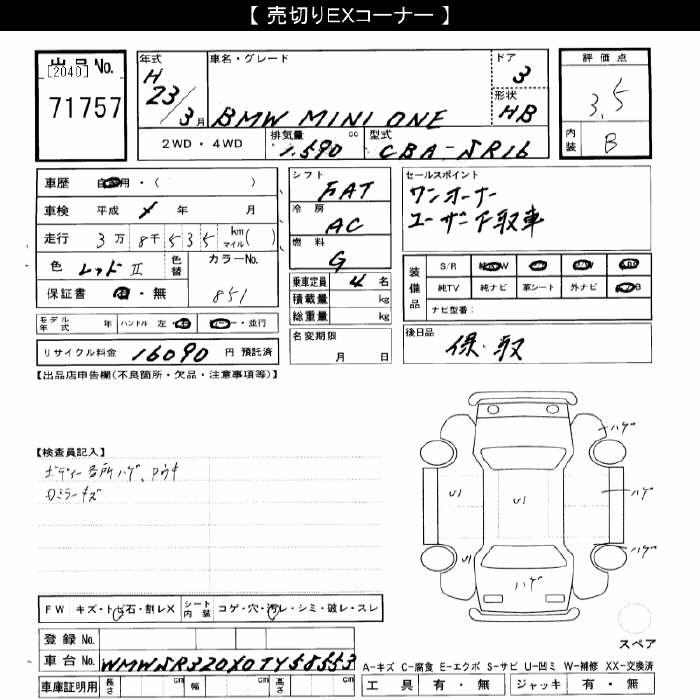 【 売切りEXコーナー 】
出品 No.
[2040]
71757
年式
H
23/3月
車名・グレード
BMW MINI ONE
ドア
3
形状
HB
評価点
3.5
内装
B
2WD・4WD
排気量 1.590 cc
型式 CBA-SR16
車歴 自家用・( )
車検 平成 年 月
走行 3万 8千 5 3 5 km マイル( )
色 レッドⅡ 色替
カラーNo. 851
保証書 有・無
シフト FAT
冷房 AC
燃料 G
乗車定員 4 名
積載量 kg
総重量 kg
名変期限
月 日
セールスポイント
ワンオーナー
ユーザー下取車
装備品
S/R
純TV 純ナビ 革シート 外ナビ
ナビ型番:
後日品
保・取
モデル年式 年 ハンドル 左・右 ディーラー・並行
リサイクル料金 16090 円 預託済
【出品店申告欄(不良箇所・欠品・注意事項等)】
【検査員記入】
ボディー各所ハゲ、クウキ
ロミラーキズ
ハゲ
U1 U1 ハゲ
U1 ハゲ
ハゲ
FW キズ・トビ石・割レX
シート内装 コゲ・穴・汚レ・シミ・破レ・スレ
スペア
登録 No.
車台 No. WMWSR320X0TY58553
車庫証明用 長さ cm 幅 cm 高さ cm
A-キズ C-腐食 E-エクボ S-サビ U-凹ミ W-補修 XX-交換済
工具 有・無 ジャッキ 有・無